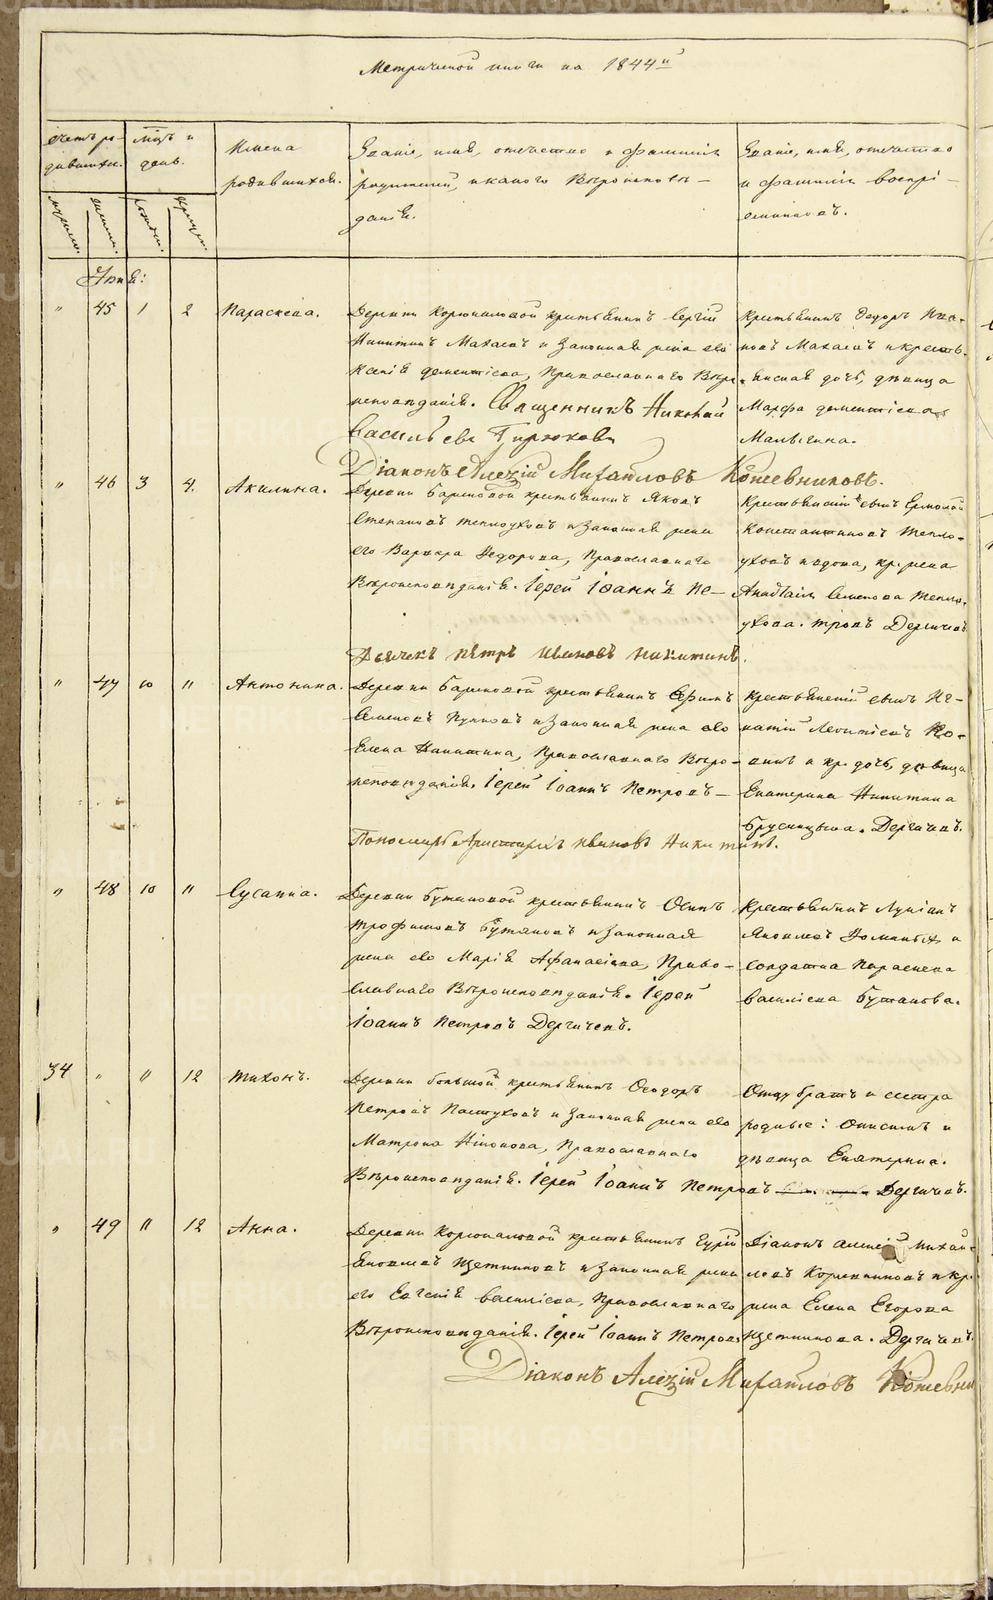 Метрической книги на 1844й
Счетъ ро-
дившихся.
мцъ и
день.
Имена
родившихся.
Званіе, имя, отчество и фамилія
родителей, и какого Вѣроиспове-
данія.
Званіе, имя, отчество
и фамилія воспрі-
емниковъ.
Іюня:
" 45 1 2 Параскева.
Деревни Корюкаловой крестьянинъ Сергій
Никитинъ Махаевъ и Законная жена его
Ксенія Дементіева, Православнаго Вѣро-
исповѣданія. Священникъ Николай
Васильевъ
Крестьянинъ Федоръ Ива-
новъ Махаевъ и кресть-
янская дочь, дѣвица
Марфа Дементіева
Малыгина.
Діаконъ Алексій Михайловъ Кожевниковъ.
" 46 3 4. Акилина.
Деревни Бариновой крестьянинъ Яковъ
Степановъ Теплоуховъ и Законная жена
его Варвара Федорова, Православнаго
Вѣроисповѣданія. Іерей Іоаннъ Пе-
Крестьянскій сынъ Ермолай
Константиновъ Тепло-
уховъ и вдова, кр. жена
Анастасія Семенова Тепло-
ухова. тровъ Дергачевъ
Дьячекъ Петръ Ивановъ Никитинъ.
" 47 10 11 Антонина.
Деревни Бариновой крестьянинъ Ефимъ
Семеновъ и Законная жена его
Елена Никитина, Православнаго Вѣро-
исповѣданія. Іерей Іоаннъ Петровъ-
Крестьянскій сынъ Иг-
натій Леонтіевъ Ко-
и кр. дочь, дѣвица
Екатерина Никитина
Брусницына. Дергачевъ.
Пономарь Аристархъ Ивановъ Никитинъ.
" 48 10 11 Сусанна.
Деревни Бутаковой крестьянинъ Осипъ
Трофимовъ Бутаковъ и Законная
жена его Марія Афанасіева, Право-
славнаго Вѣроисповѣданія. Іерей
Іоаннъ Петровъ Дергачевъ.
Крестьянинъ Лукіанъ
Яковлевъ и
солдатка Параскева
Василіева Бутакова.
34 " 11 12 Тихонъ.
Деревни Большой крестьянинъ Ѳеодоръ
Петровъ Пастуховъ и Законная жена его
Матрона Никонова, Православнаго
Вѣроисповѣданія. Іерей Іоаннъ Петровъ Дергачевъ.
Отцу братъ и сестра
родные: Онисимъ и
дѣвица Екатерина.
" 49 11 12 Анна.
Деревни Корюкаловой крестьянинъ Гурій
Яковлевъ Щетниковъ и Законная жена
его Евгенія Василіева, Православнаго
Вѣроисповѣданія. Іерей Іоаннъ Петровъ
Діаконъ Алексій Михай-
ловъ Кожевниковъ и кр.
жена Елена Егорова
Щетникова. Дергачевъ.
Діаконъ Алексій Михайловъ Кожевни
METRIKI.GASO-URAL.RU